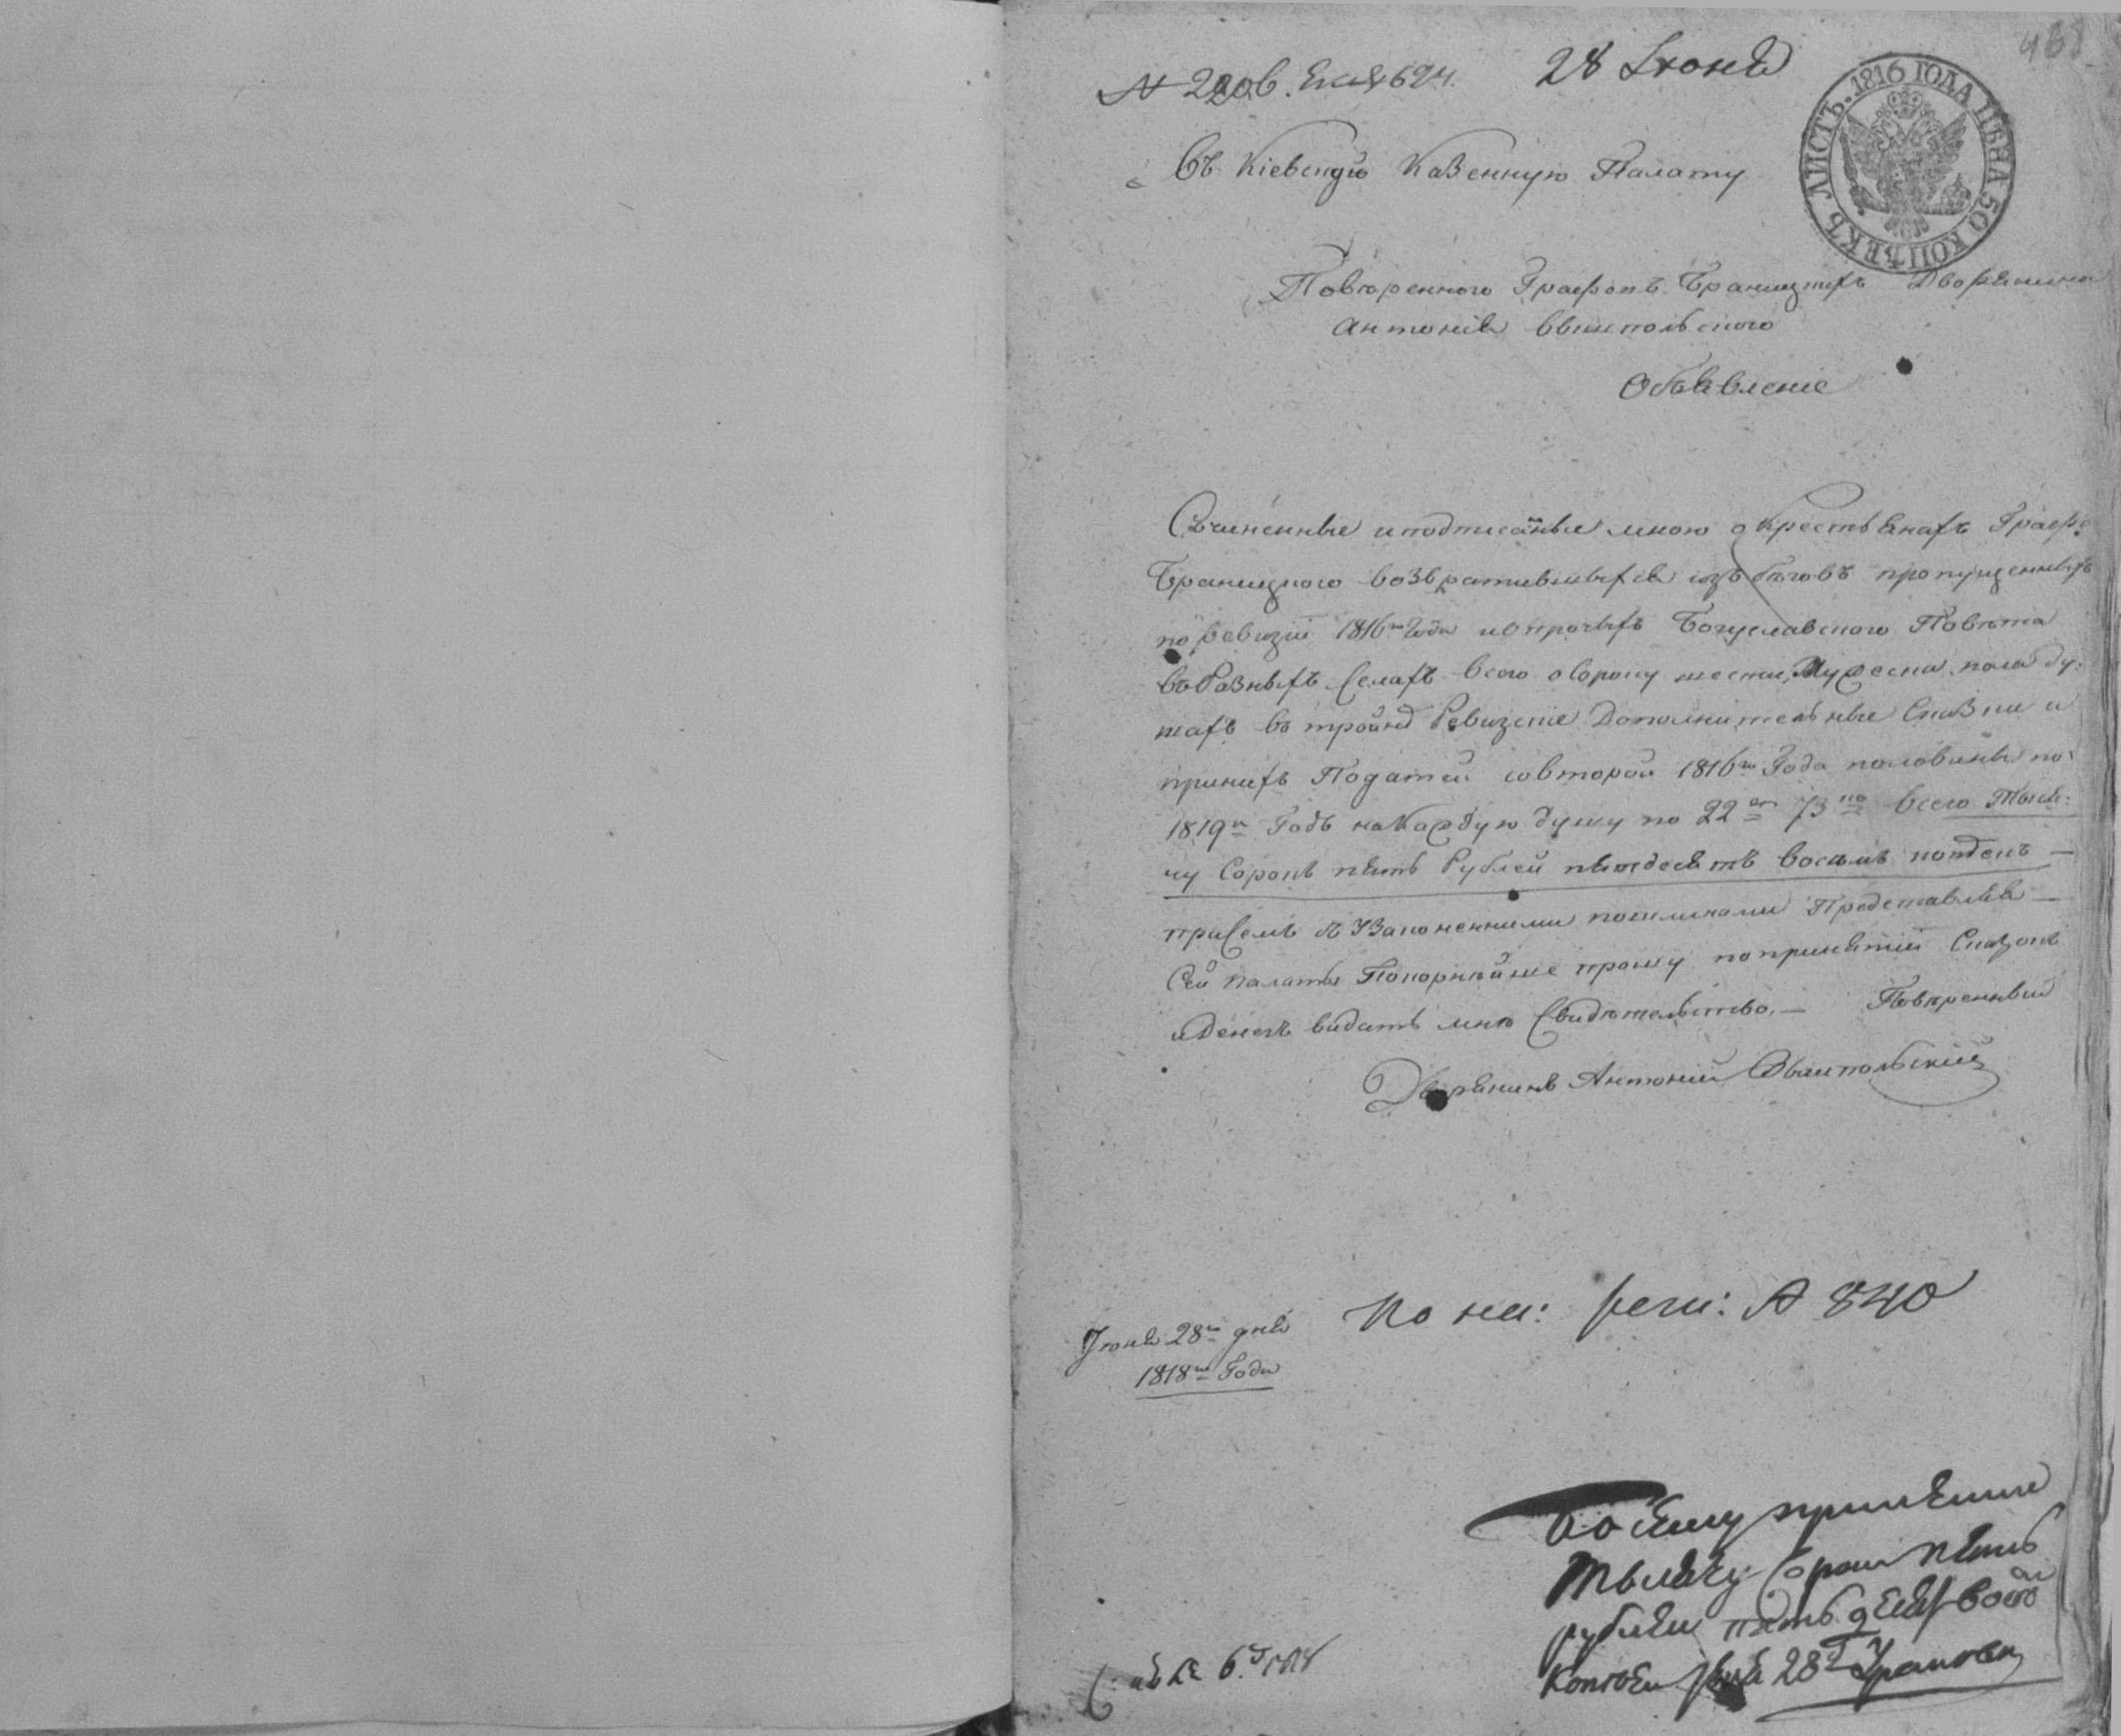 468
28 Июня
ЛИСТЪ. 1816 ГОДА ЦѢНА 50 КОПѢЕКЪ
Въ Кіевскую Казенную Палату
Повѣренного Графовъ Браницкихъ Дворянина
Антонія
Объявленіе
Сочиненные и подписанные мною о крестьянахъ Граф:
Браницкого возвратившихся изъ бѣговъ пропущенныхъ
по ревизіи 1816го Года и протчихъ Богуславского Повѣта
въ Разныхъ Селахъ всего о сороку шести Мужеска пола ду:
шахъ въ тройнѣ Ревизскіе Дополнительные Сказки и
при нихъ Податей со второй 1816го Года половины по
1819й Годъ на Каждую душу по 22 73 ко всего Тыся:
чу Сорокъ пять Рублей пятдесятъ восемь копѣекъ —
при Семъ съ Узаконенними пошлинами Представляя —
Сей Палаты Покорнѣйше прошу по принятіи Сказокъ
и Денегъ видать мнѣ Свидѣтельство. — Повѣренный
Дворянинъ Антоній
Іюня 28го дня
1818го Года
По на: реги: 840
По сему приняты
тысячу Сорокъ пять
рублей пятьдесят восем
копѣекъ 28